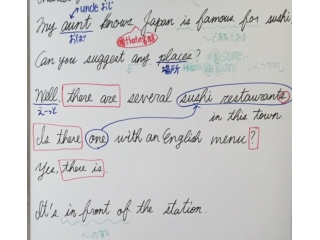 uncle おじ
My aunt knows Japan is famous for sushi
おば
Can you suggest any places?
場所
Well, there are several sushi restaurants
えーと
in this town.
Is there one with an English menu?
Yes, there is.
It's in front of the station.
〜の前